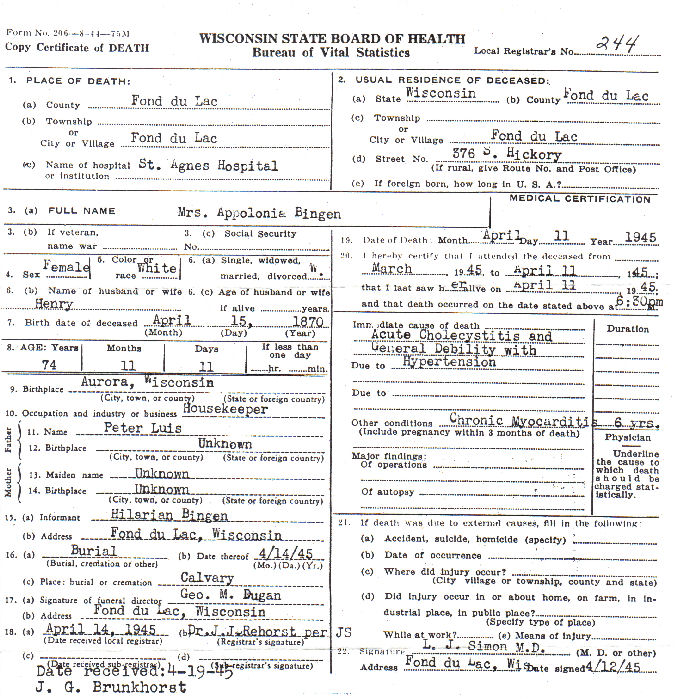 Form No. 206—8-44—75M
Copy Certificate of DEATH
WISCONSIN STATE BOARD OF HEALTH
Bureau of Vital Statistics
Local Registrar's No. 244
1. PLACE OF DEATH:
(a) County Fond du Lac
(b) Township
or
City or Village Fond du Lac
(c) Name of hospital St. Agnes Hospital
or institution
2. USUAL RESIDENCE OF DECEASED:
(a) State Wisconsin (b) County Fond du Lac
(c) Township
or
City or Village Fond du Lac
(d) Street No. 376 S. Hickory
(If rural, give Route No. and Post Office)
(e) If foreign born, how long in U. S. A.?
3. (a) FULL NAME Mrs. Appolonia Bingen
MEDICAL CERTIFICATION
3. (b) If veteran, 3. (c) Social Security
name war No.
4. Sex Female 5. Color or race White 6. (a) Single, widowed, married, divorced W.
6. (b) Name of husband or wife 6. (c) Age of husband or wife
Henry if alive years.
7. Birth date of deceased April 15, 1870
(Month) (Day) (Year)
8. AGE: Years Months Days If less than one day
74 11 11 hr. min.
9. Birthplace Aurora, Wisconsin
(City, town, or county) (State or foreign country)
10. Occupation and industry or business Housekeeper
Father
11. Name Peter Luis
12. Birthplace Unknown
(City, town, or county) (State or foreign country)
Mother
13. Maiden name Unknown
14. Birthplace Unknown
(City, town, or county) (State or foreign country)
15. (a) Informant Hilarian Bingen
(b) Address Fond du Lac, Wisconsin
16. (a) Burial (b) Date thereof 4/14/45
(Burial, cremation or other) (Mo.) (Da.) (Yr.)
(c) Place: burial or cremation Calvary
17. (a) Signature of funeral director Geo. M. Dugan
(b) Address Fond du Lac, Wisconsin
18. (a) April 14, 1945 (b) Dr. J. J. Rehorst per JS
(Date received local registrar) (Registrar's signature)
(c) (d)
(Date received sub-registrar) (Sub-registrar's signature)
Date received: 4-19-45
J. G. Brunkhorst
19. Date of Death: Month April Day 11 Year 1945
20. I hereby certify that I attended the deceased from
March 1945 to April 11 1945;
that I last saw her alive on April 11 1945;
and that death occurred on the date stated above at 6:30pm
Immediate cause of death Duration
Acute Cholecystitis and
General Debility with
Due to Hypertension
Due to
Other conditions Chronic Myocarditis 6 yrs.
(Include pregnancy within 3 months of death)
Physician
Major findings:
Of operations
Of autopsy
Underline
the cause to
which death
should be
charged stat-
istically.
21. If death was due to external causes, fill in the following:
(a) Accident, suicide, homicide (specify)
(b) Date of occurrence
(c) Where did injury occur?
(City village or township, county and state)
(d) Did injury occur in or about home, on farm, in in-
dustrial place, in public place?
(Specify type of place)
While at work? (e) Means of injury
22. Signature L. J. Simon M.D. (M. D. or other)
Address Fond du Lac, Wis Date signed 4/12/45